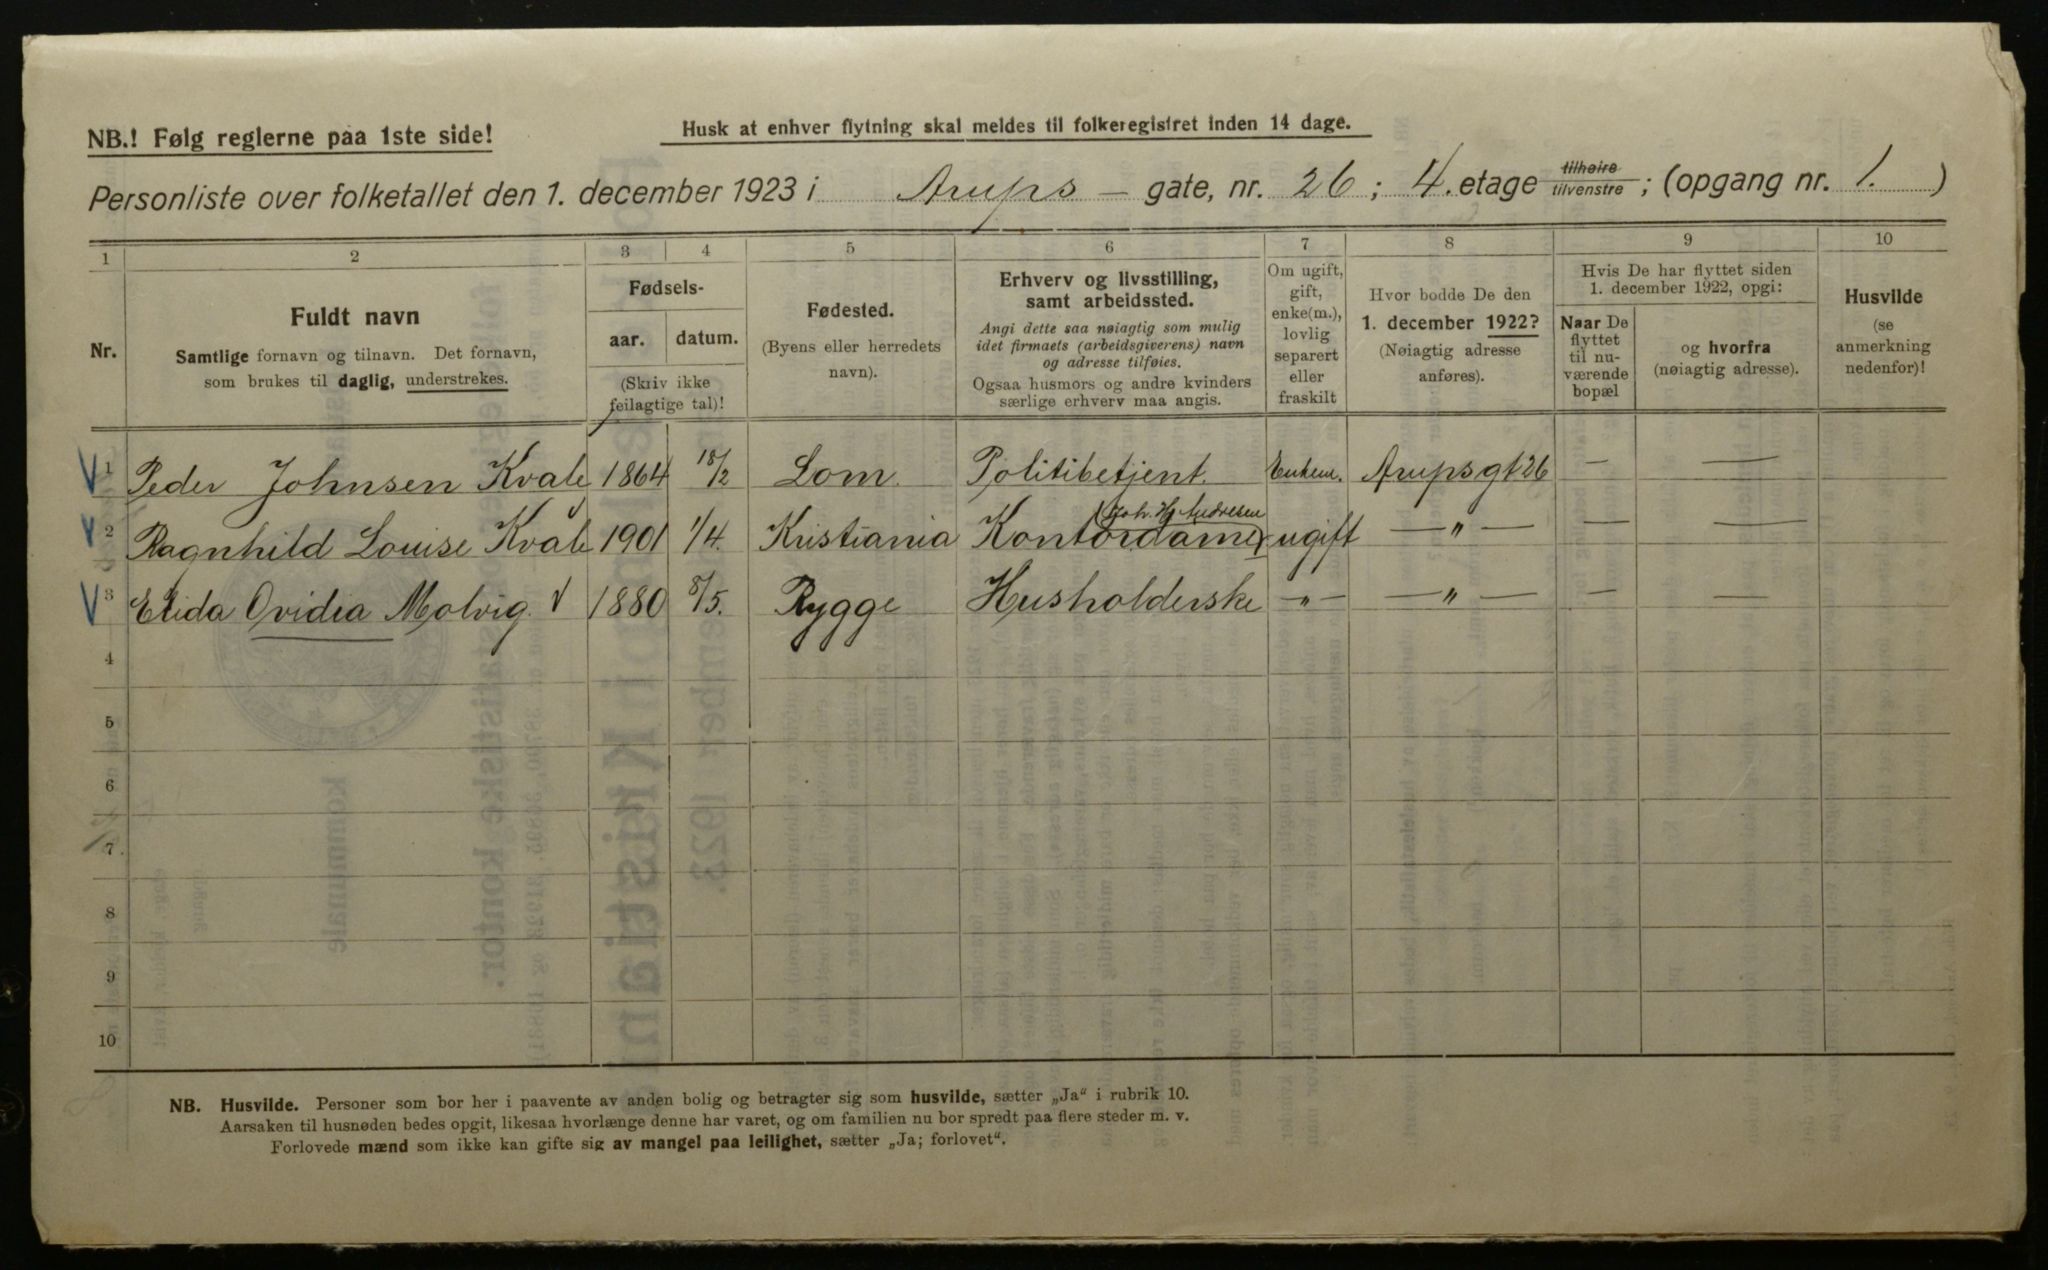 NB.! Følg reglerne paa 1ste side!
Husk at enhver flytning skal meldes til folkeregistret inden 14 dage.
Personliste over folketallet den 1. december 1923 i Arups — gate, nr. 26 ; 4. etage tilhøire tilvenstre ; (opgang nr. 1. )
1 2 3 4 5 6 7 8 9 10
Nr.
Fuldt navn
Samtlige fornavn og tilnavn. Det fornavn,
som brukes til daglig, understrekes.
Fødsels-
aar. datum.
(Skriv ikke
feilagtige tal)!
Fødested.
(Byens eller herredets
navn).
Erhverv og livsstilling,
samt arbeidssted.
Angi dette saa nøiagtig som mulig
idet firmaets (arbeidsgiverens) navn
og adresse tilføies.
Ogsaa husmors og andre kvinders
særlige erhverv maa angis.
Om ugift,
gift,
enke(m.),
lovlig
separert
eller
fraskilt
Hvor bodde De den
1. december 1922?
(Nøiagtig adresse
anføres).
Hvis De har flyttet siden
1. december 1922, opgi:
Naar De
flyttet
til nu-
værende
bopæl
og hvorfra
(nøiagtig adresse).
Husvilde
(se
anmerkning
nedenfor)!
1 Peder Johnsen Kvale 1864 18/2 Lom. Politibetjent. Enkem. Arupsgt 26 — —
2 Ragnhild Louise Kvale 1901 1/4. Kristiania Kontordame (Joh. Hj Andresen) ugift — „ — — —
3 Elida Ovidia Molvig. 1880 8/5. Rygge Husholderske — „ — — „ — — —
4
5
6
7
8
9
10
NB. Husvilde. Personer som bor her i paavente av anden bolig og betragter sig som husvilde, sætter „Ja“ i rubrik 10.
Aarsaken til husnøden bedes opgit, likesaa hvorlænge denne har varet, og om familien nu bor spredt paa flere steder m. v.
Forlovede mænd som ikke kan gifte sig av mangel paa leilighet, sætter „Ja; forlovet“.